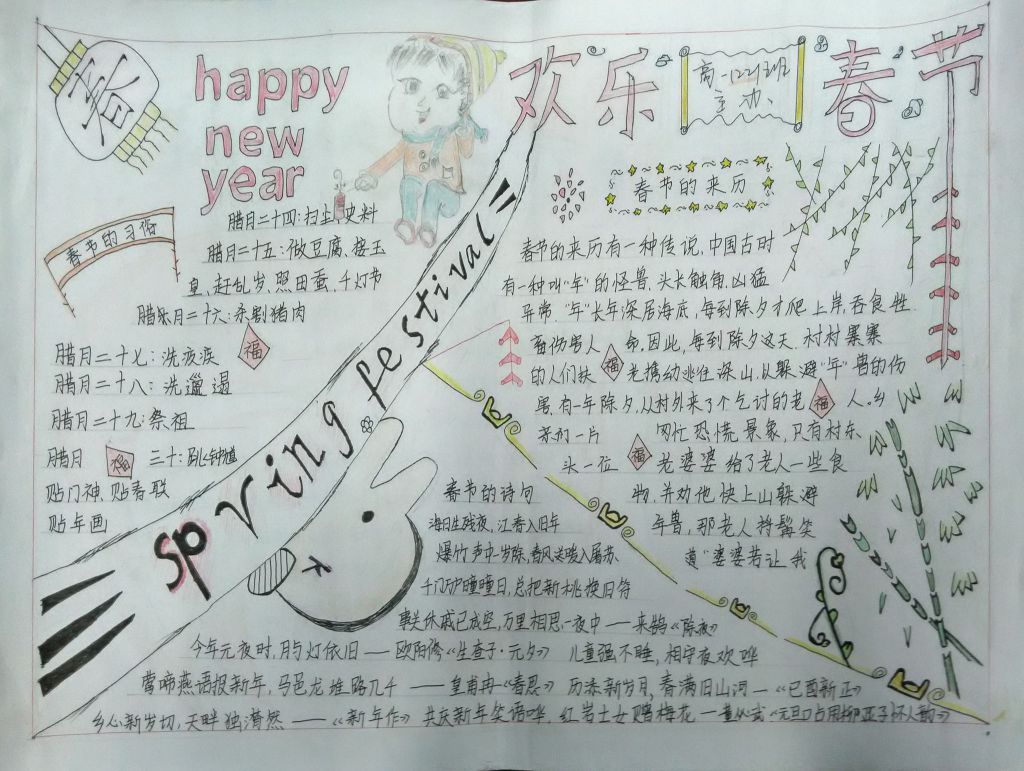 春
happy
new
year
欢乐春节
高一221班
主办
Spring festival"
春节的习俗
腊月二十四:扫尘,史料
腊月二十五:做豆腐、接玉
皇、赶乱岁、照田蚕、千灯节
腊月二十六:杀割猪肉
腊月二十七:洗疚
腊月二十八:洗邋遢
腊月二十九:祭祖
腊月 福 三十:跳钟馗
贴门神、贴春联
贴年画
福
春节的来历
春节的来历有一种传说,中国古时
有一种叫"年"的怪兽,头长触角,凶猛
异常."年"长年深居海底,每到除夕才爬上岸,吞食牲
畜伤害人命.因此,每到除夕这天,村村寨寨
的人们扶 福 老携幼逃往深山,以躲避"年"兽的伤
害.有一年除夕,从村外来了个乞讨的老 福 人。乡
亲们一片匆忙恐慌景象,只有村东
头一位 福 老婆婆给了老人一些食
物,并劝他快上山躲避
年兽,那老人捋髯笑
道"婆婆若让我
春节的诗句
海日生残夜,江春入旧年
爆竹声中一岁除,春风送暖入屠苏
千门万户曈曈日,总把新桃换旧符
事关休戚已成空,万里相思一夜中——来鹄《除夜》
今年元夜时,月与灯依旧——欧阳修《生查子·元夕》 儿童强不睡,相守夜欢哗
莺啼燕语报新年,马邑龙堆路几千——皇甫冉《春思》 历添新岁月,春满旧山河—《己酉新正》
乡心新岁切,天畔独潸然——《新年作》 共庆新年笑语哗,红岩士女赠梅花—董必武《元旦口占用柳亚子怀人韵》